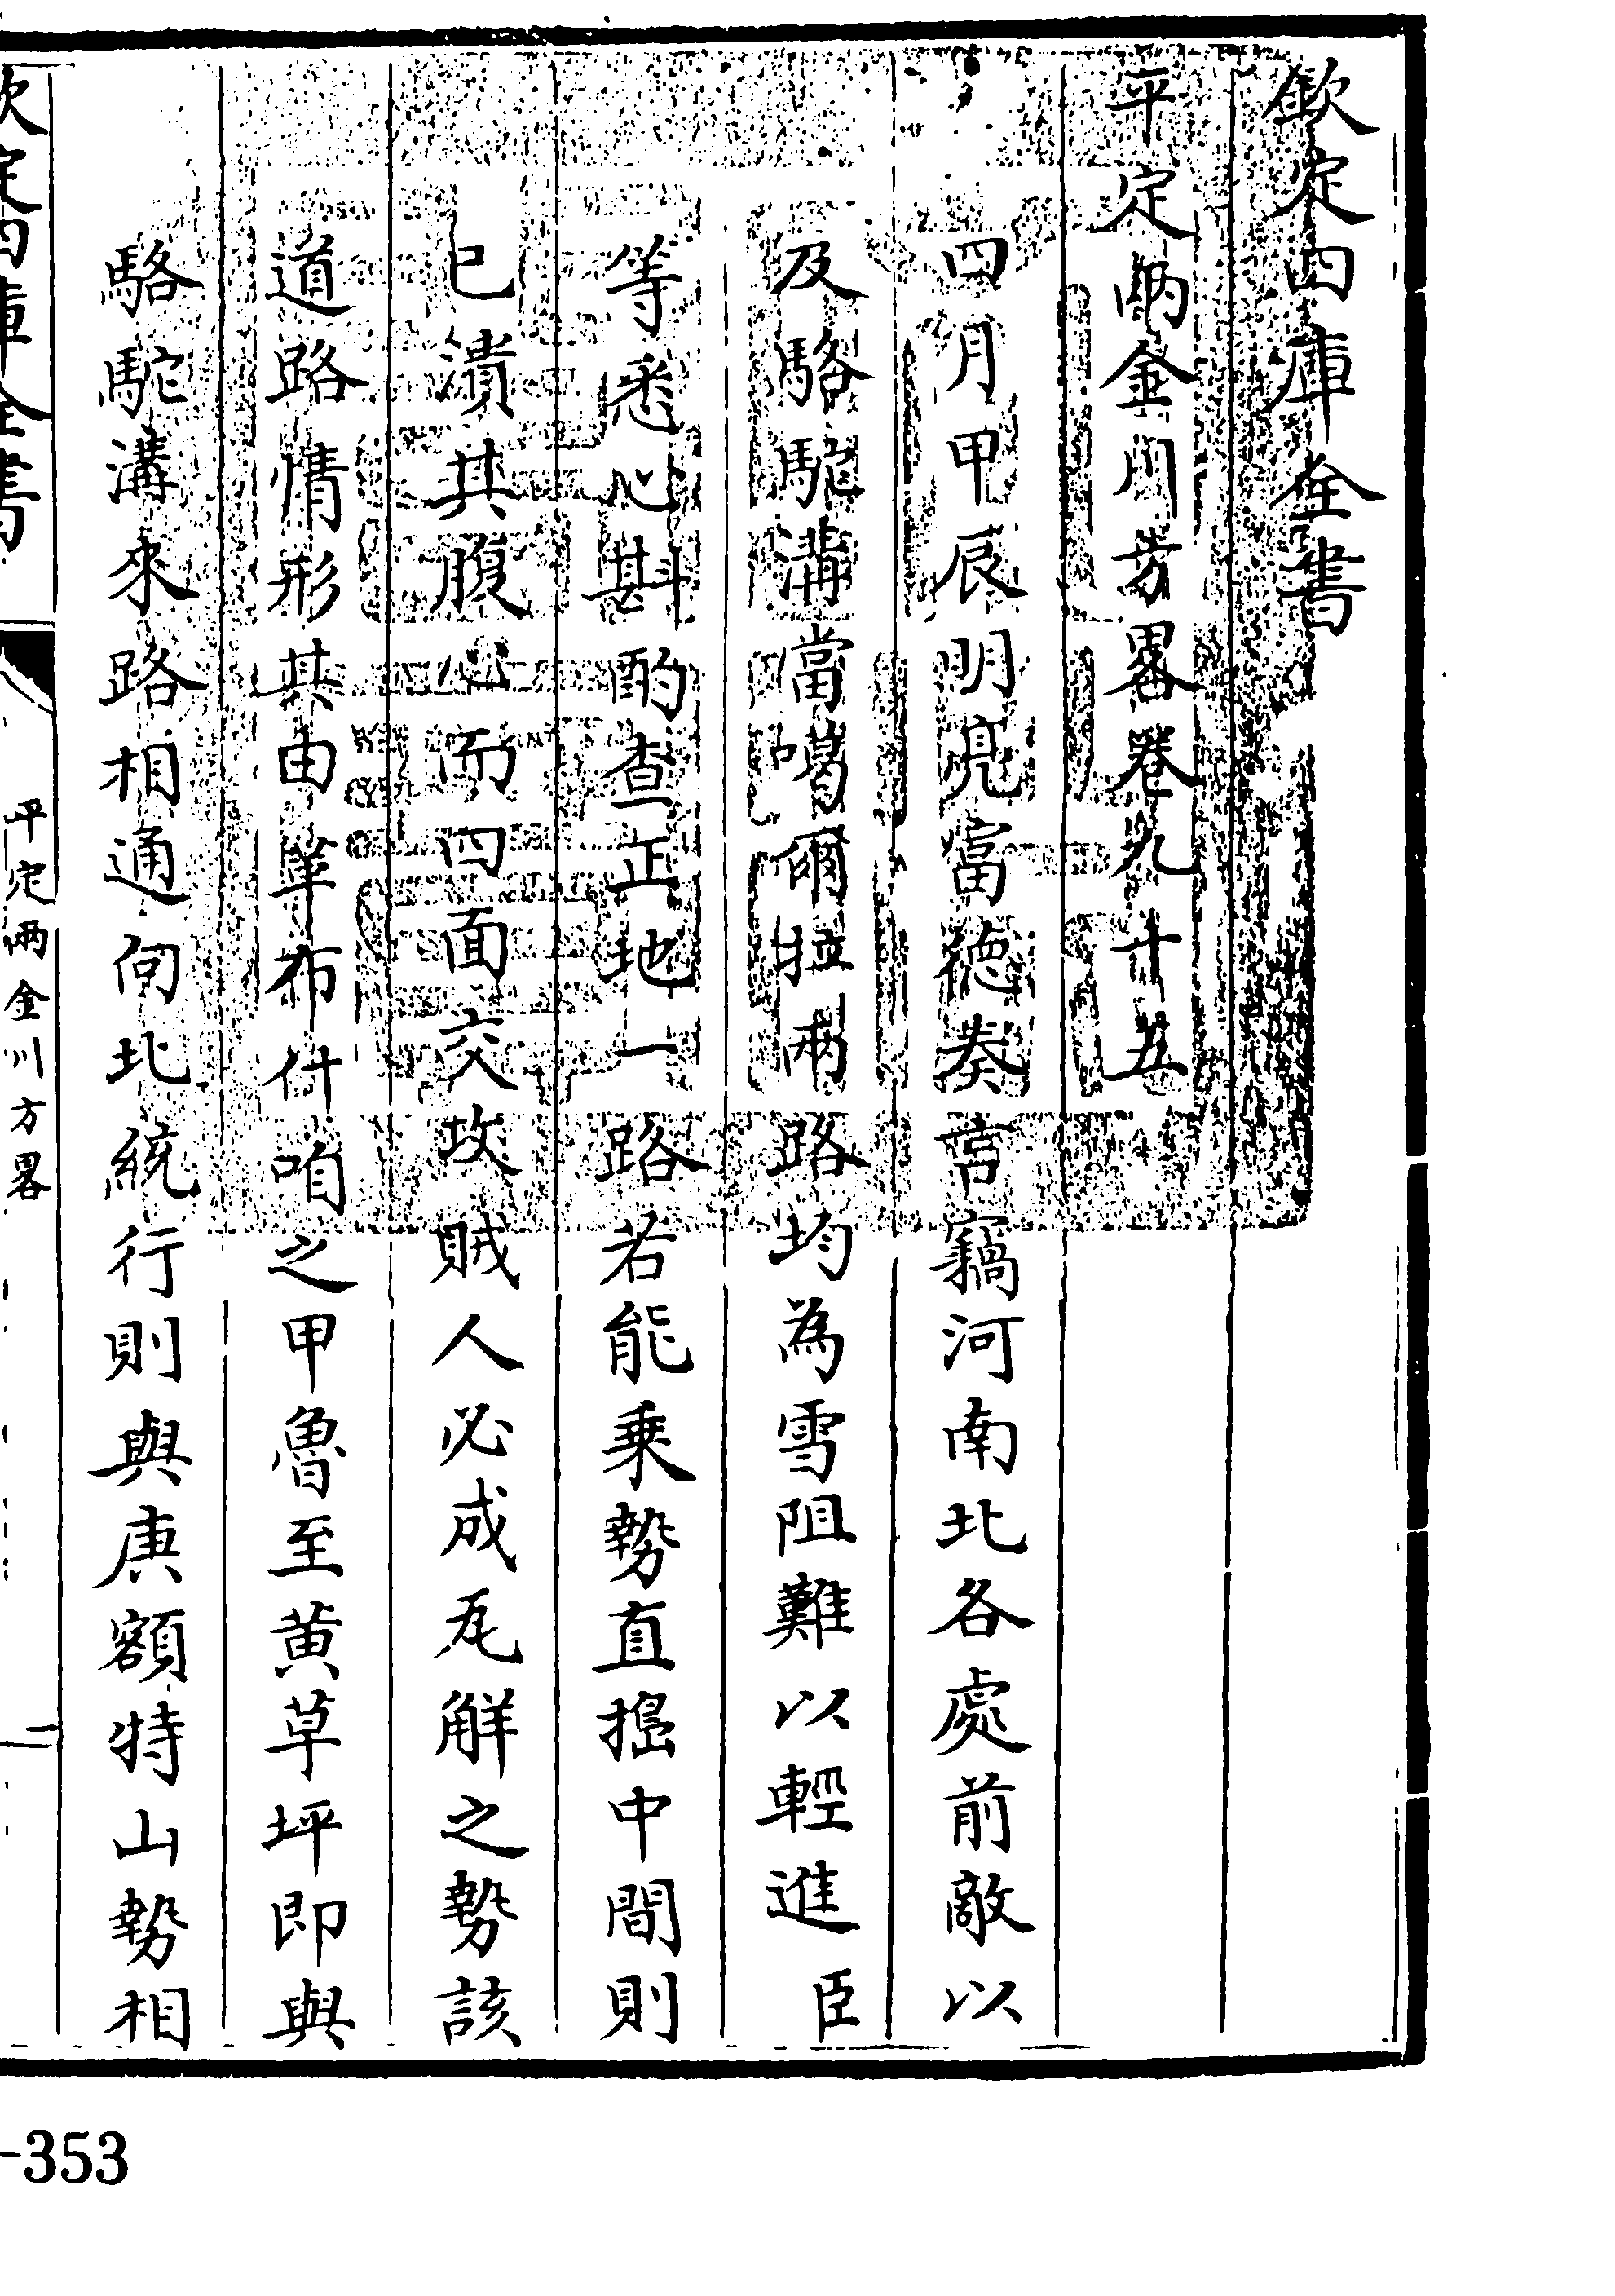 欽定四庫全書
平定兩金川方畧卷九十五
四月甲辰明亮富德奏言竊河南北各處前敵以
及駱駝溝當噶爾拉兩路均為雪阻難以輕進臣
等悉心斟酌查正地一路若能乗勢直搗中間則
已潰其腹心而四面交攻賊人必成瓦解之勢該
道路情形其由革布什咱之甲魯至黄草坪即與
駱駝溝來路相通向北繞行則與庚額特山勢相
欽定四庫全書
平定兩金川方畧
一
-353